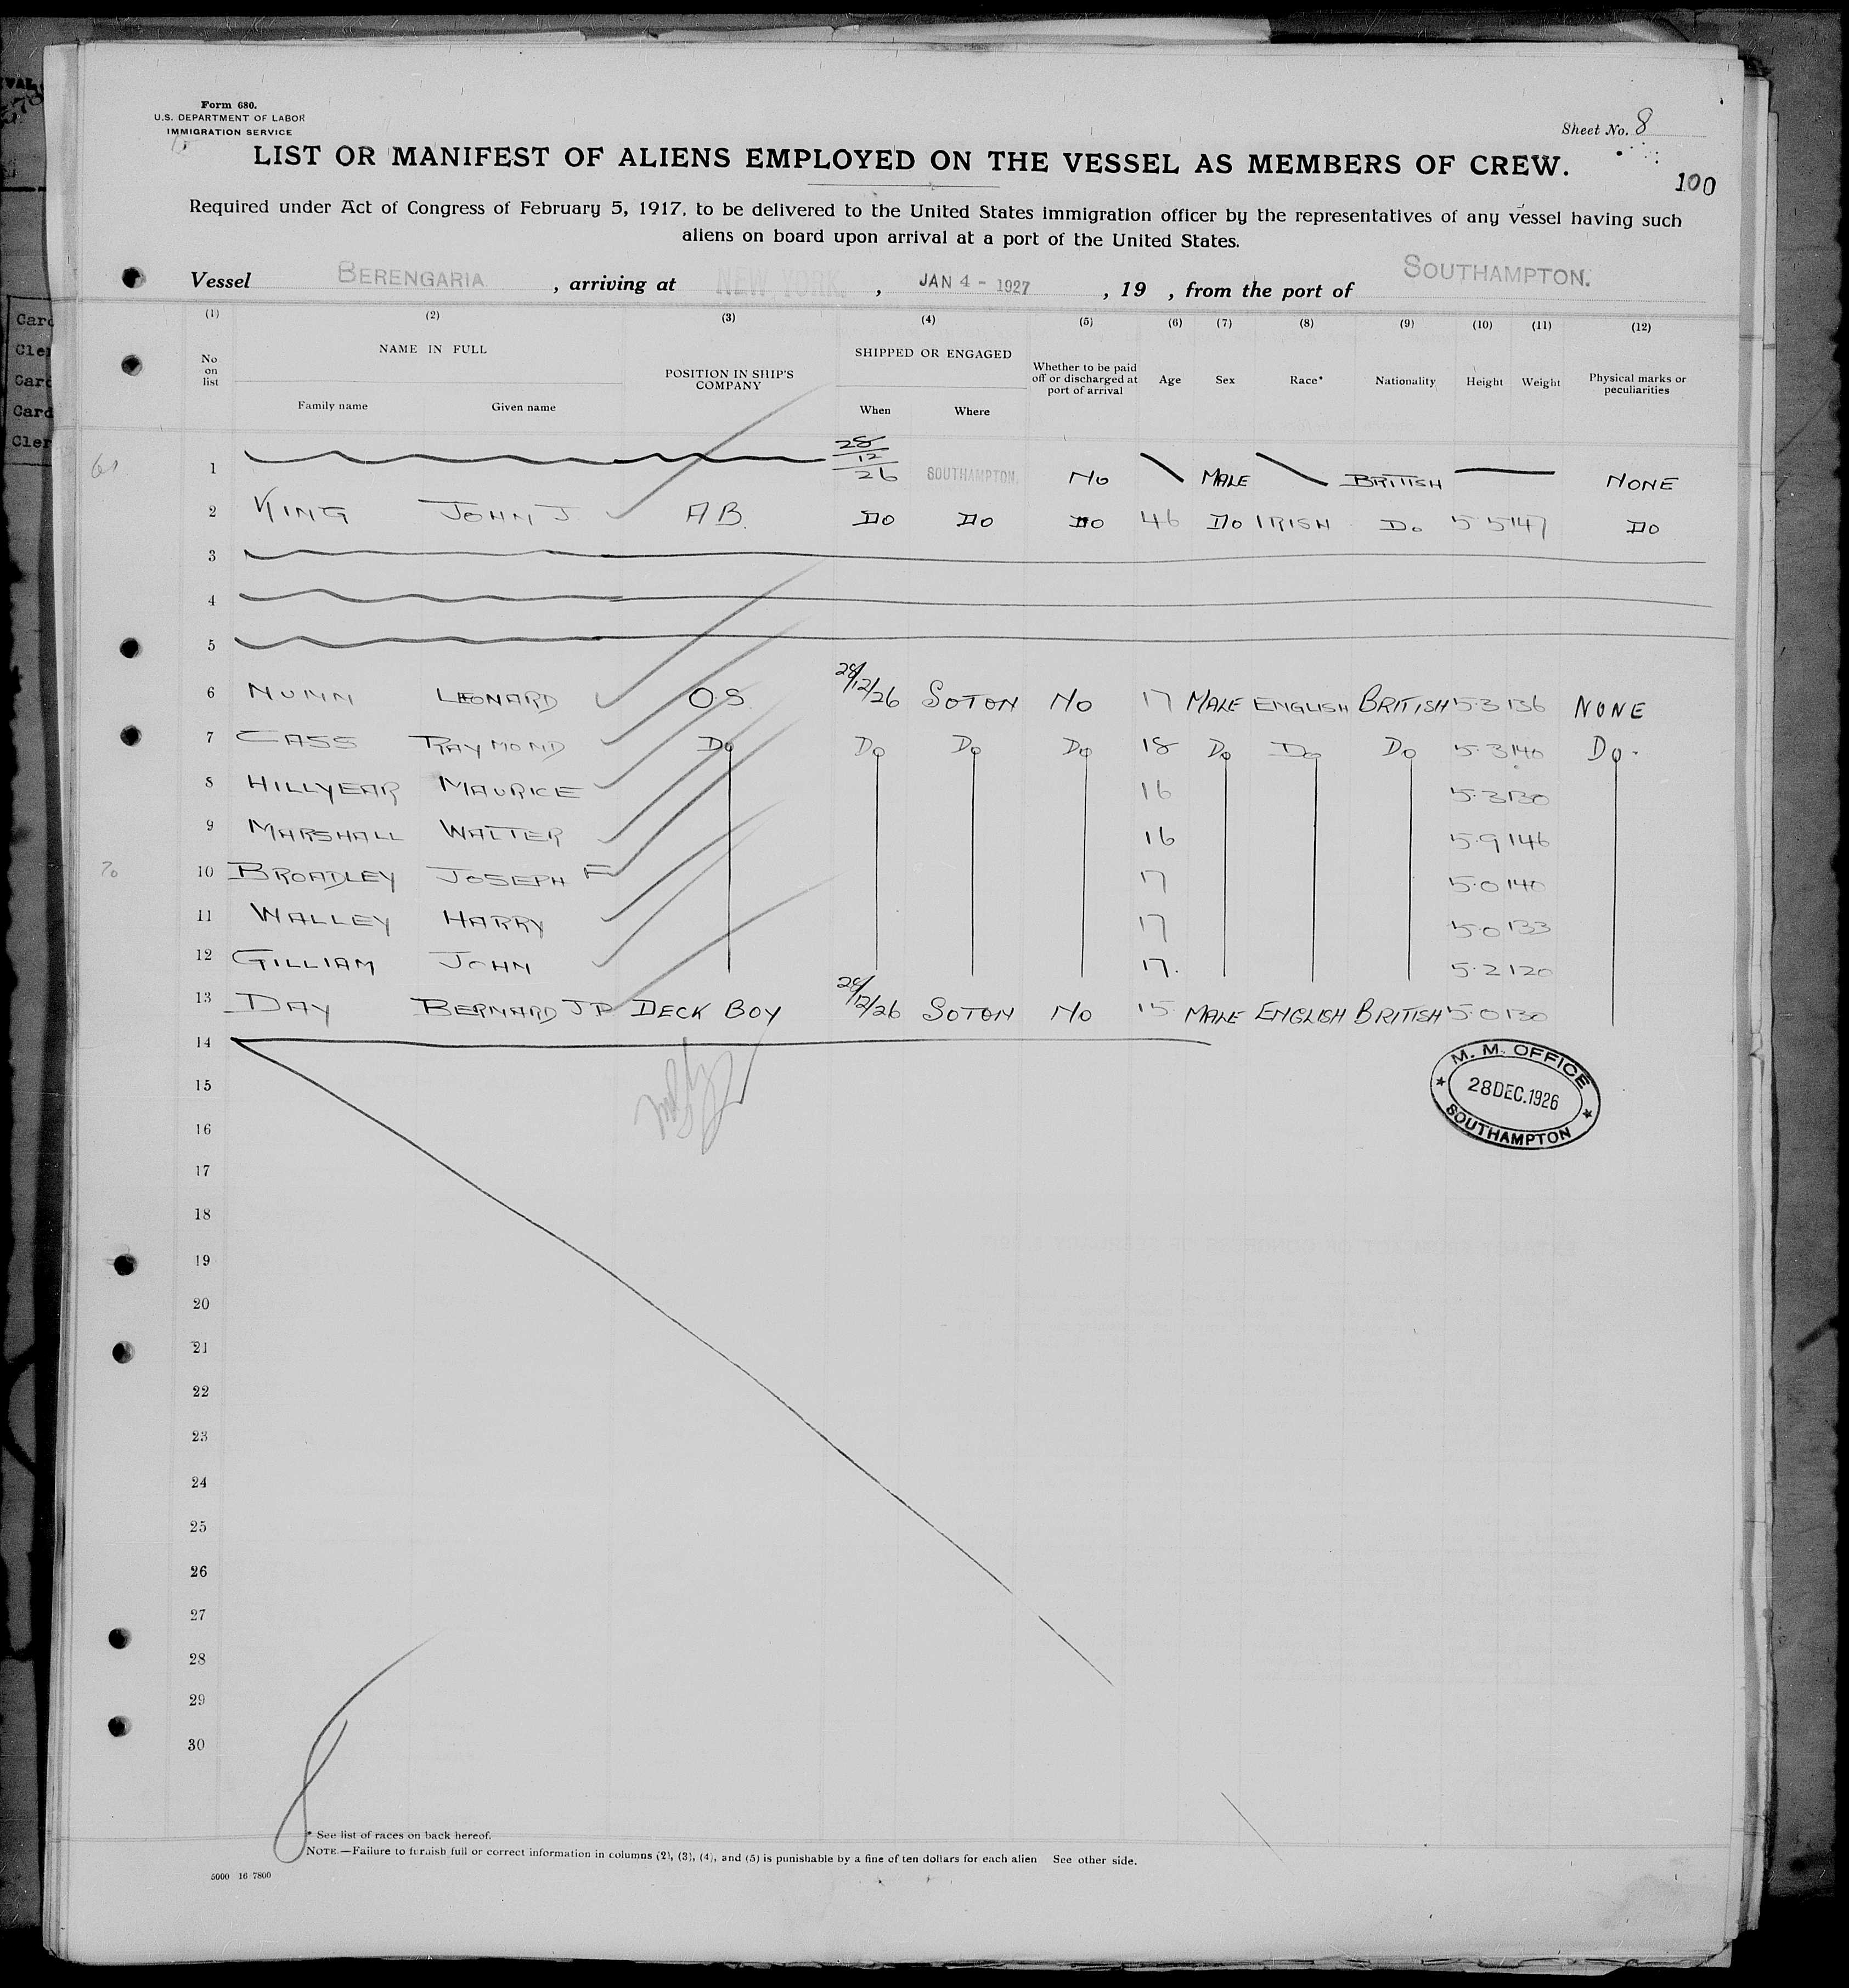 Form 680.
U.S. DEPARTMENT OF LABOR
IMMIGRATION SERVICE
Sheet No. 8
LIST OR MANIFEST OF ALIENS EMPLOYED ON THE VESSEL AS MEMBERS OF CREW.
100
Required under Act of Congress of February 5, 1917, to be delivered to the United States immigration officer by the representatives of any vessel having such
aliens on board upon arrival at a port of the United States.
Vessel BERENGARIA , arriving at NEW YORK. , JAN 4 - 1927 , 19 , from the port of SOUTHAMPTON.
(1) (2) (3) (4) (5) (6) (7) (8) (9) (10) (11) (12)
No on list NAME IN FULL Family name Given name POSITION IN SHIP'S COMPANY SHIPPED OR ENGAGED When Where Whether to be paid off or discharged at port of arrival Age Sex Race* Nationality Height Weight Physical marks or peculiarities
1 28/12/26 SOUTHAMPTON. No MALE BRITISH NONE
2 KING JOHN J. A B. Do Do Do 46 Do IRISH Do 5 5 147 Do
3
4
5
6 NUNN LEONARD O.S. 28/12/26 SOTON No 17 MALE ENGLISH BRITISH 5.3 136 NONE
7 CASS RAYMOND Do Do Do Do 18 Do Do Do 5.3 140 Do.
8 HILLYEAR MAURICE 16 5.3 130
9 MARSHALL WALTER 16 5.9 146
10 BROADLEY JOSEPH F 17 5.0 140
11 WALLEY HARRY 17 5.0 133
12 GILLIAM JOHN 17. 5.2 120
13 DAY BERNARD J P DECK BOY 28/12/26 SOTON No 15 MALE ENGLISH BRITISH 5.0 130
14
M. M. OFFICE
28 DEC. 1926
SOUTHAMPTON
15
16
17
18
19
20
21
22
23
24
25
26
27
28
29
30
8
* See list of races on back hereof.
NOTE.—Failure to furnish full or correct information in columns (2), (3), (4), and (5) is punishable by a fine of ten dollars for each alien See other side.
5000 16 7800
Card
Cler
Card
Card
Cler